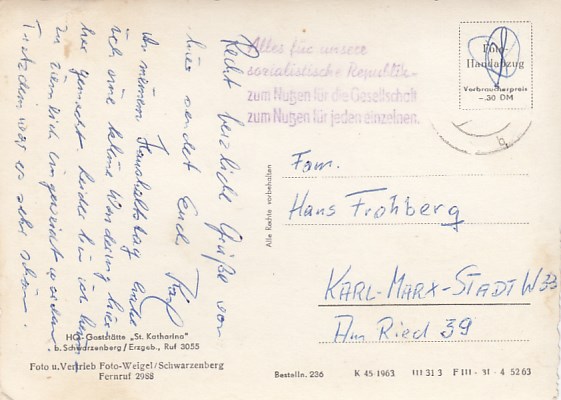 Recht herzliche Grüße von
hier sendet Euch
An meinem Haushaltstag habe
ich eine kleine Wanderung hier
her gemacht, leider bin ich
ziemlich worden
Trotzdem war es sehr schön.
Alles für unsere
sozialistische Republik –
zum Nutzen für die Gesellschaft
zum Nutzen für jeden einzelnen.
Foto-
Handabzug
Verbraucherpreis
–.30 DM
Alle Rechte vorbehalten
Fam.
Hans Frohberg
KARL-MARX-STADT W 33
Am Ried 39
HO-Gaststätte „St. Katharina"
b. Schwarzenberg/Erzgeb., Ruf 3055
Foto u. Vertrieb Foto-Weigel/Schwarzenberg
Fernruf 2988
Bestelln. 236 K 45-1963 III 31 3 F III - 31 - 4 52 63